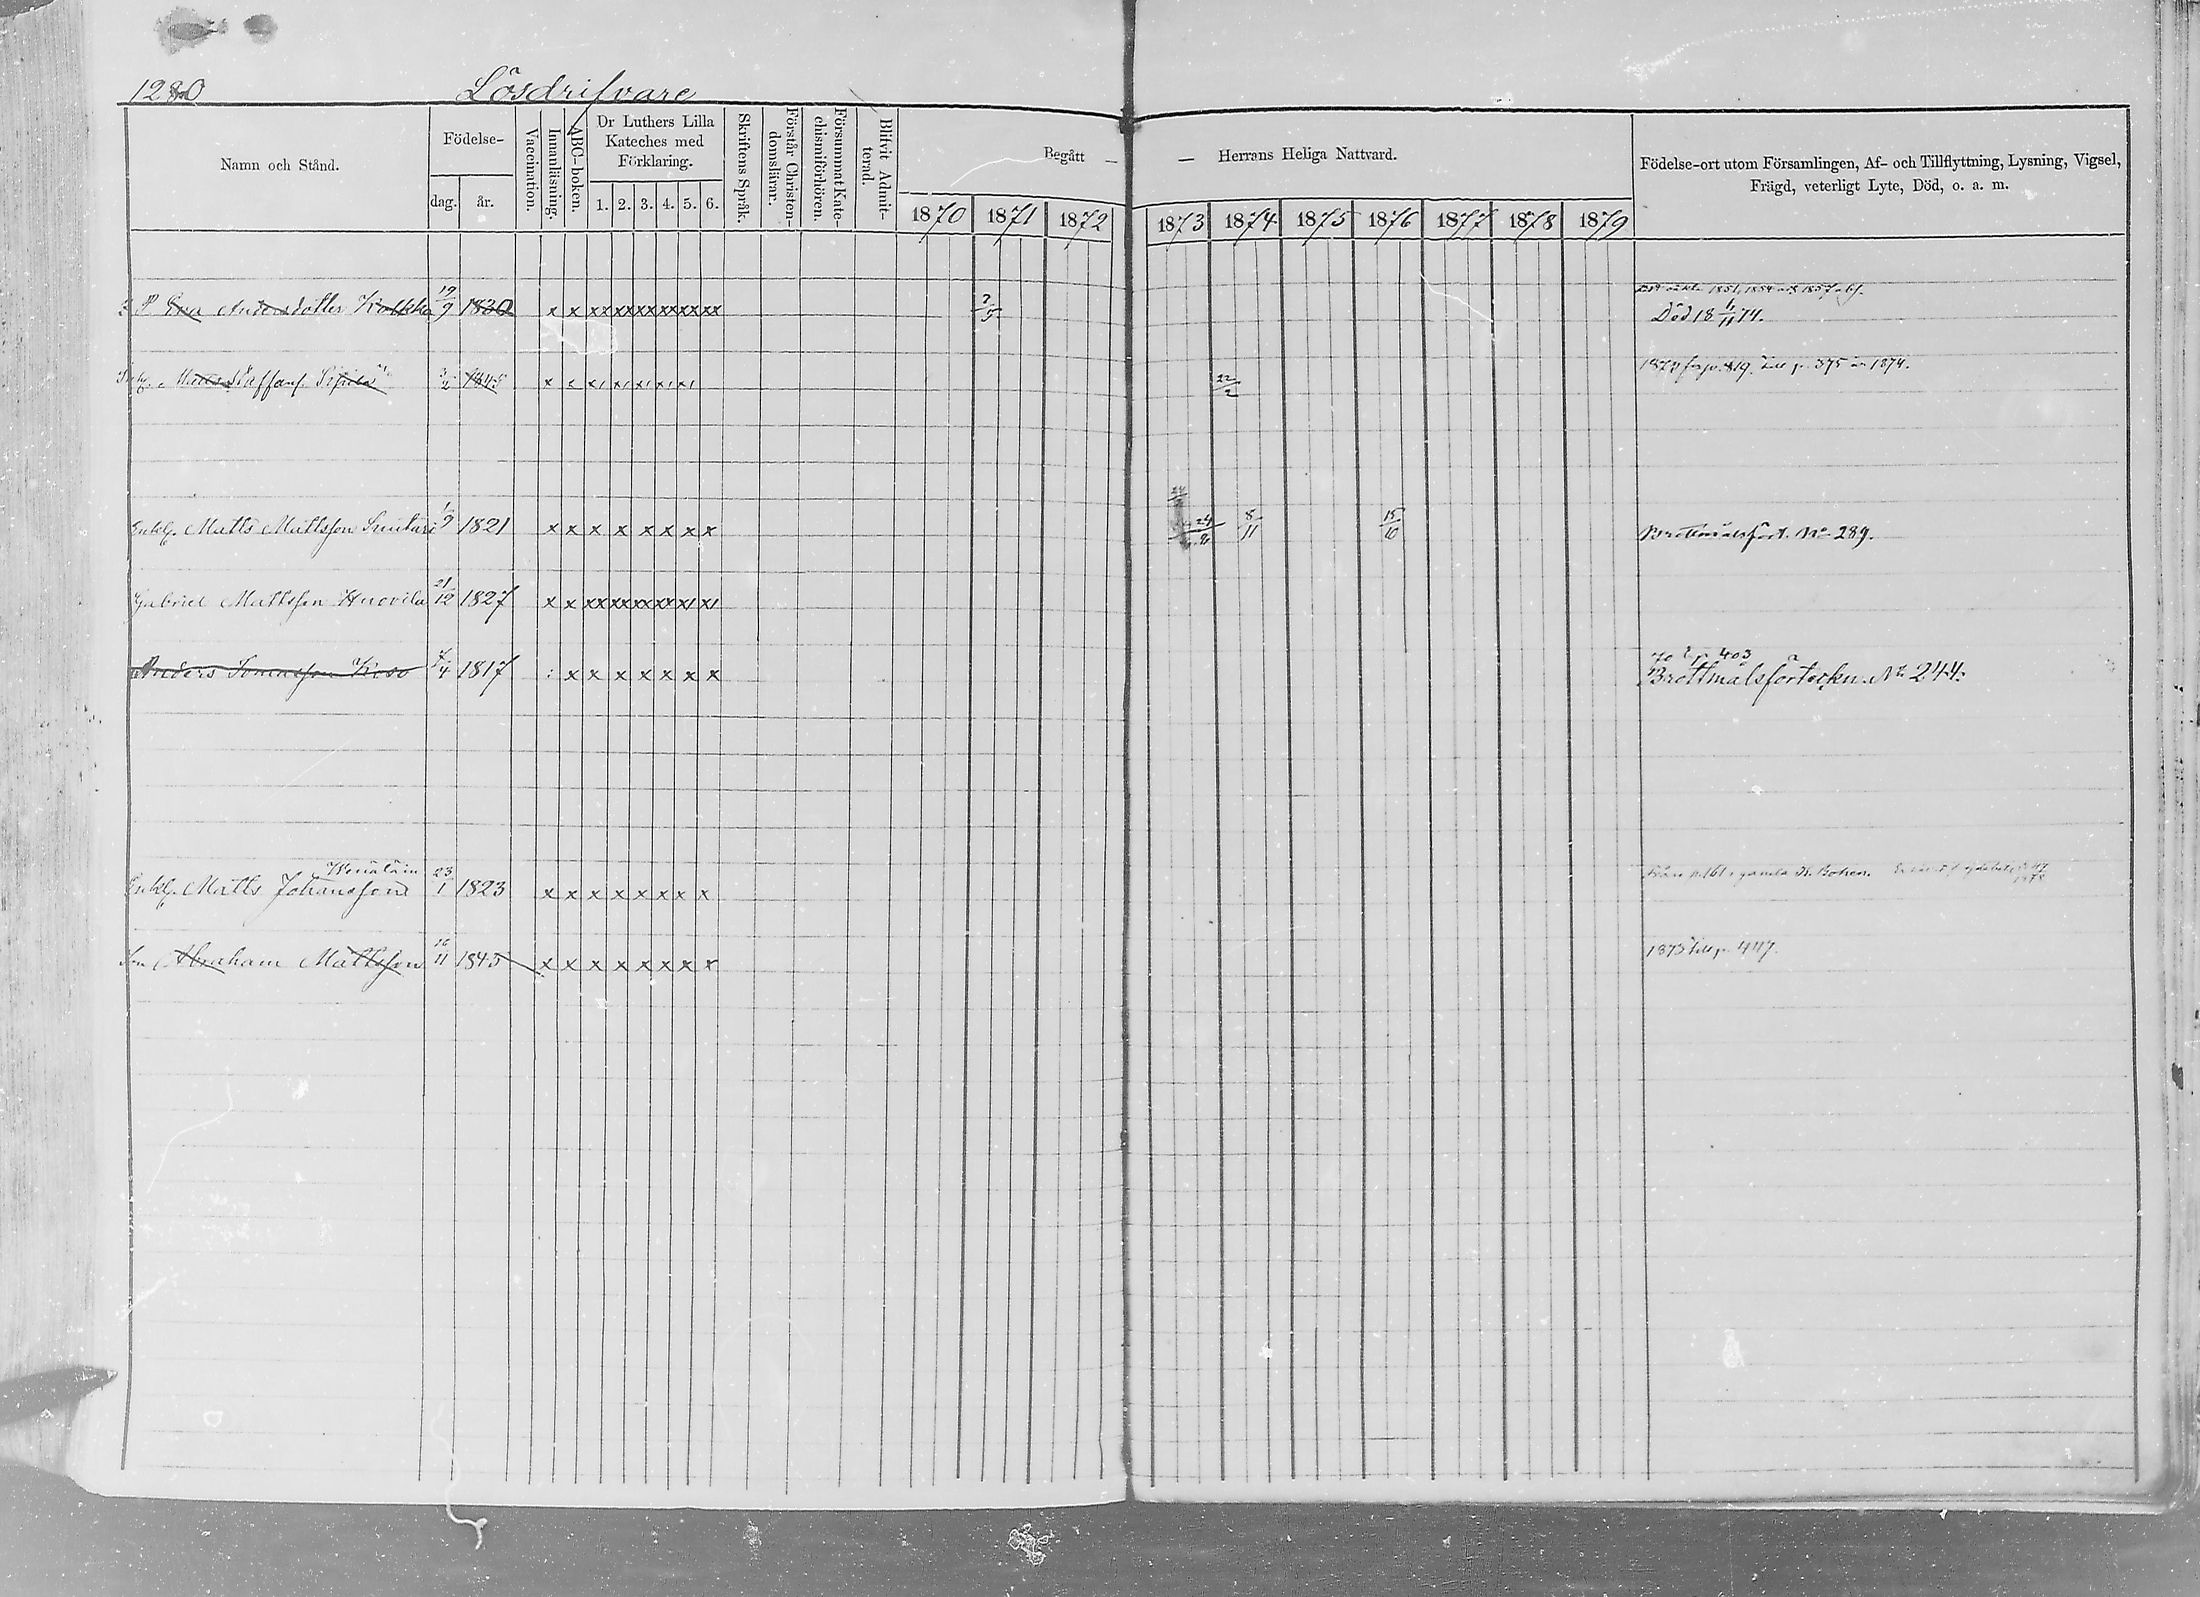 1280 Lösdrifvare
Namn och Stånd.
Födelse-
dag. år.
Vaccination.
Innanläsning.
ABC-boken.
Dr Luthers Lilla
Kateches med
Förklaring.
1. 2. 3. 4. 5. 6.
Skriftens Språk.
Förstår Christen-
domslärar.
Försummat Kate-
chismiförhören.
Blifvit Admit-
terad.
Begått — — Herrans Heliga Nattvard.
1870 1871 1872 1873 1874 1875 1876 1877 1878 1879
Födelse-ort utom Församlingen, Af- och Tillflyttning, Lysning, Vigsel,
Frägd, veterligt Lyte, Död, o. a. m.
1851, 1854 1857
Eva Andersdotter 19/9 1830 x x xx xx xx xx xx xx 7/5 Död 18 6/11 74.
till p. 375 år 1874.
Staffans. x x x1 x1 x1 x1 x1 22/2
Enkl. Matts Mattsson 1/9 1821 x x x x x x x x 8/11 15/10 Brottmålsfört. No 289.
Gabriel Mattsson Huovila 21/12 1827 x x xx xx xx xx x1 x1
p. 403
Anders Tomasson 1817 : x x x x x x x Brottmålsförteckn. No 244.
Enkl. Matts Johansson 23/1 1823 x x x x x x x x Från p. 161 i gamla K. Boken.
Son Abraham Mattsson 16/11 1845 x x x x x x x x 1873 till p. 447.